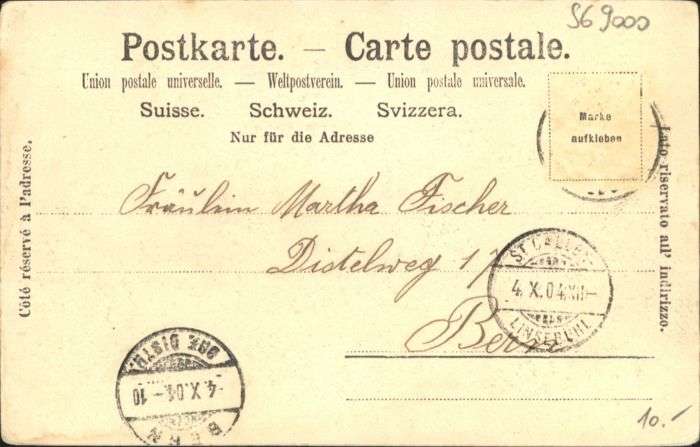 569000
Postkarte. — Carte postale.
Union postale universelle. — Weltpostverein. — Union postale universale.
Suisse. Schweiz. Svizzera.
Nur für die Adresse
Marke
aufkleben
Côté réservé à l'adresse.
Lato riservato all' indirizzo.
Fräulein Martha Fischer
Distelweg 17
Bern
ST. GALLEN
4.X.04.XII–
LINSEBÜHL
BRF. DISTR.
4.X.04–10
BERN
10.–